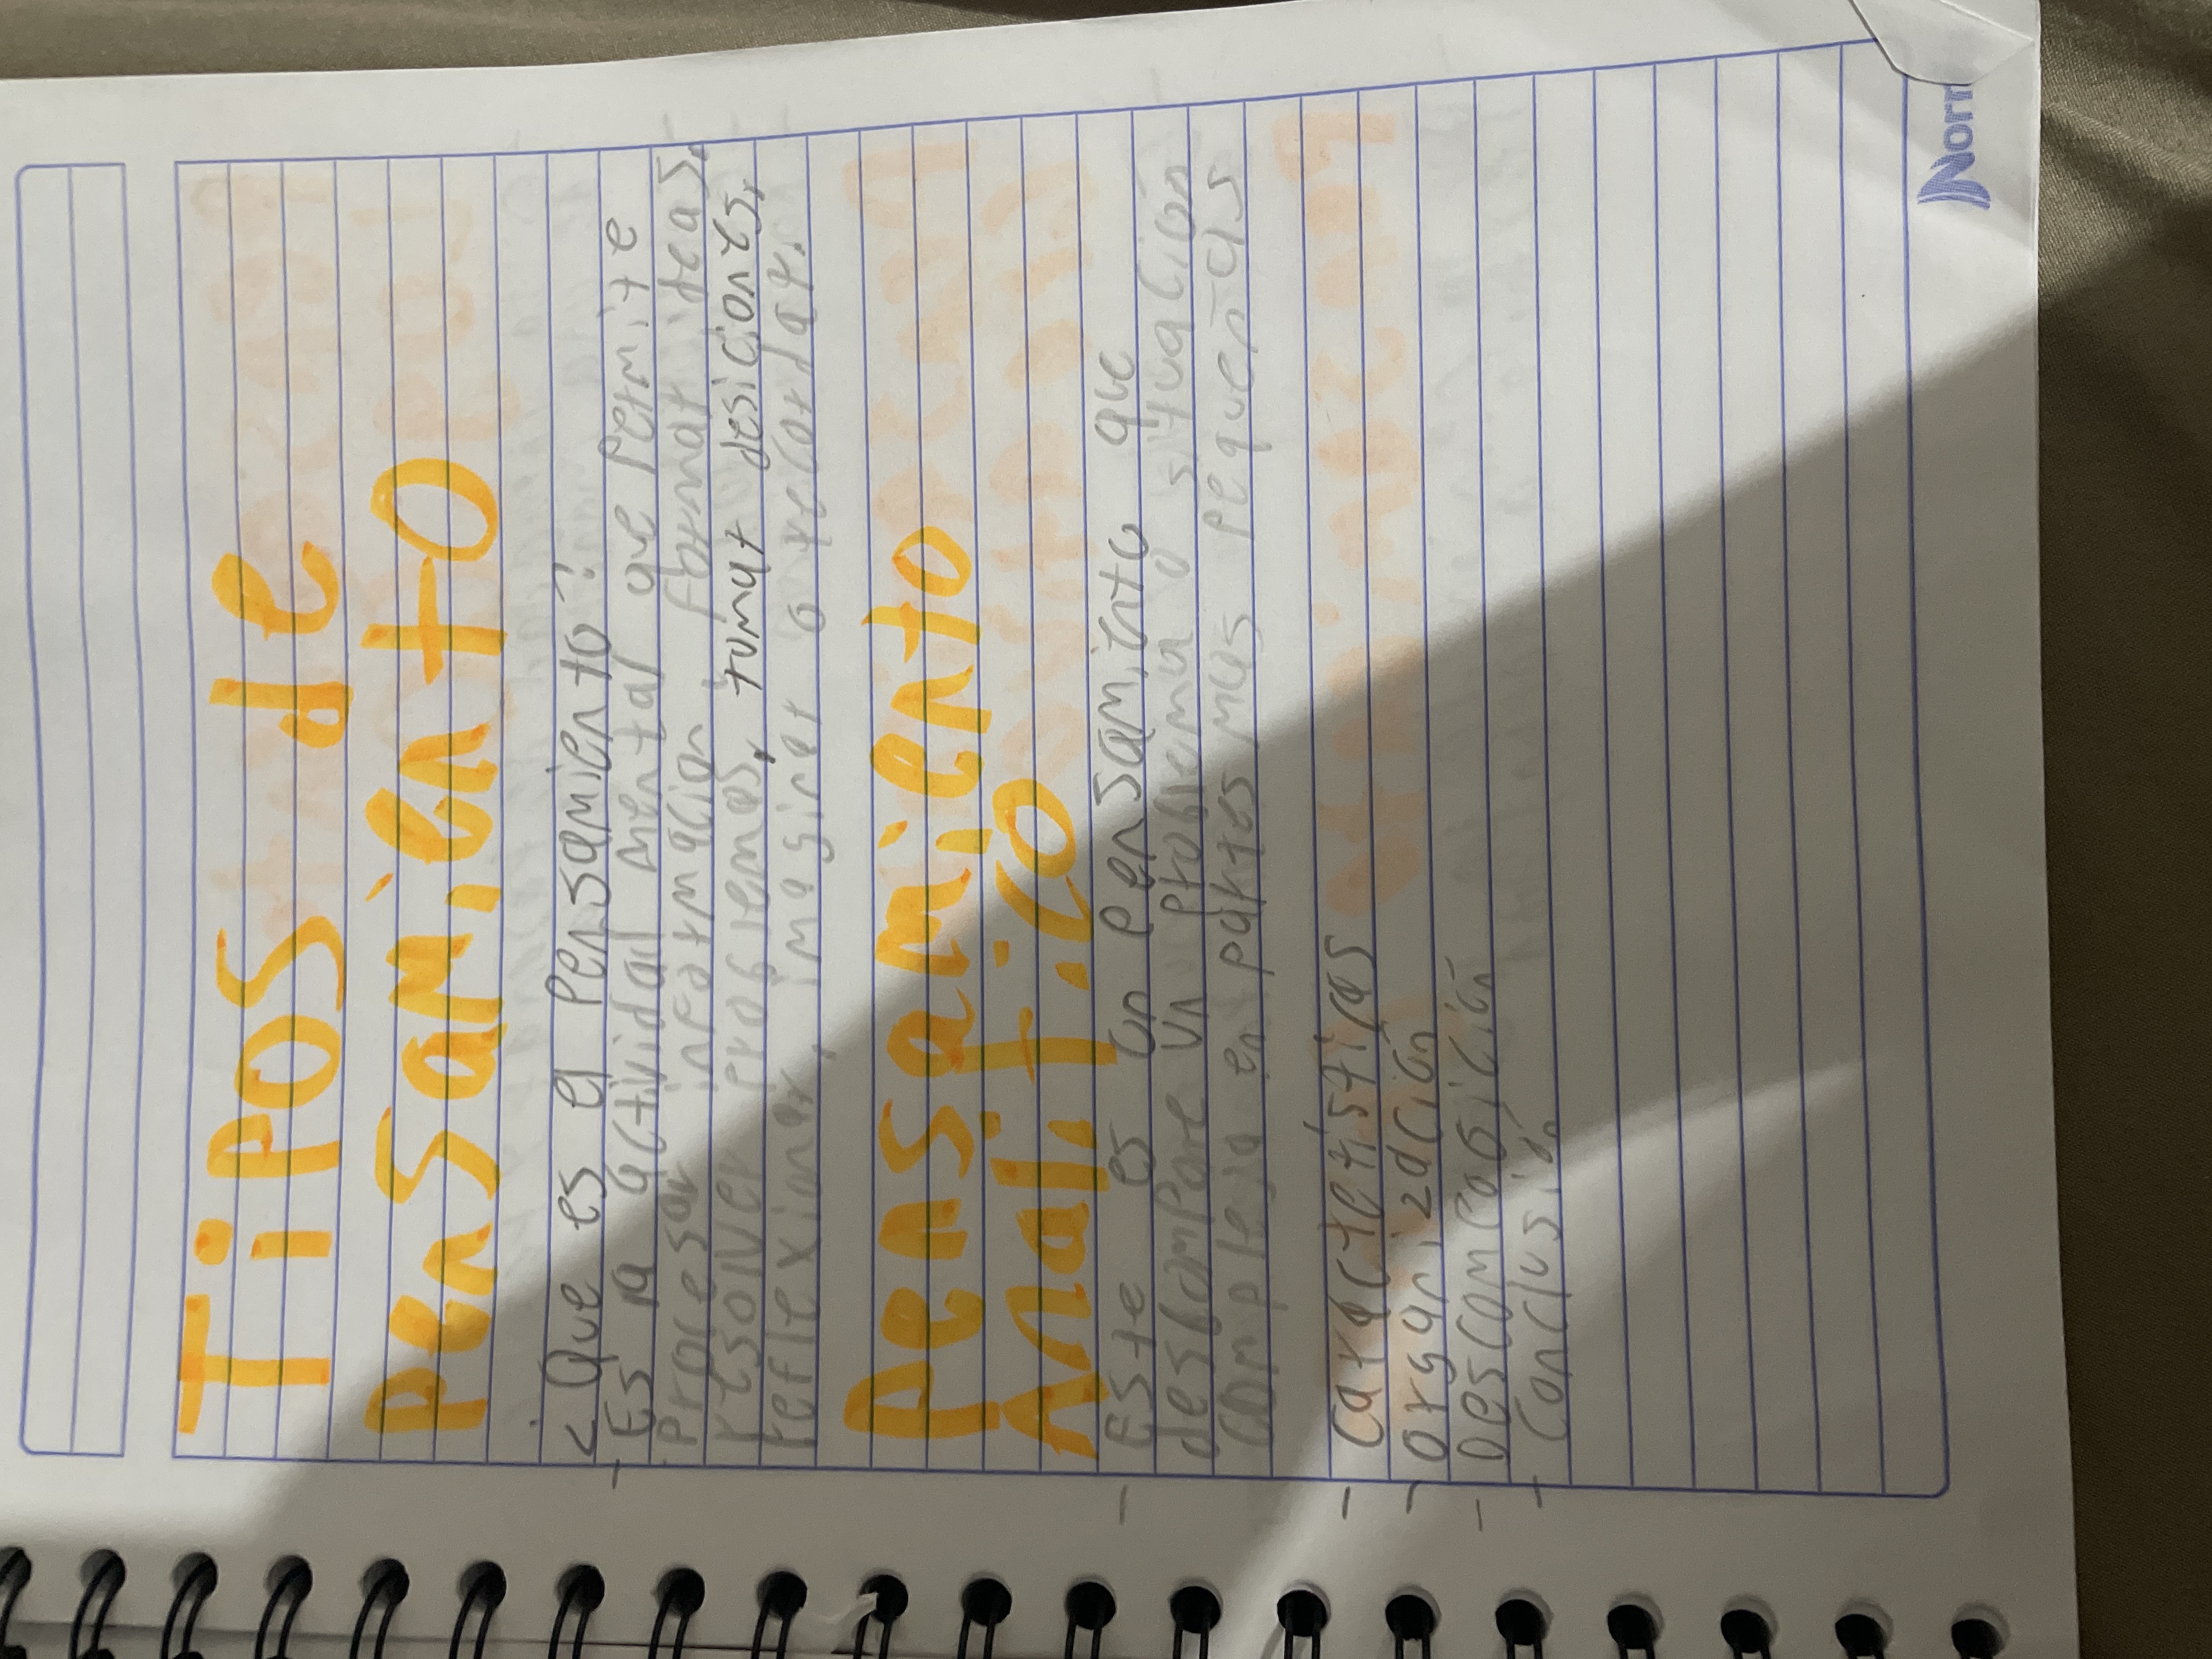 Tipos de
Pensamiento
¿Que es el Pensamiento?
- Es la actividad mental que permite
Procesar información formar ideas,
resolver problemas, tomar desiciones,
reflexionar, imaginar o recordar.
Pensamiento
Analitico
- Este es un pensamiento que
descompone un problema o situacion
compleja en partes mas pequeñas
- Características
- organización
- Descomposición
- Conclusión
Norm